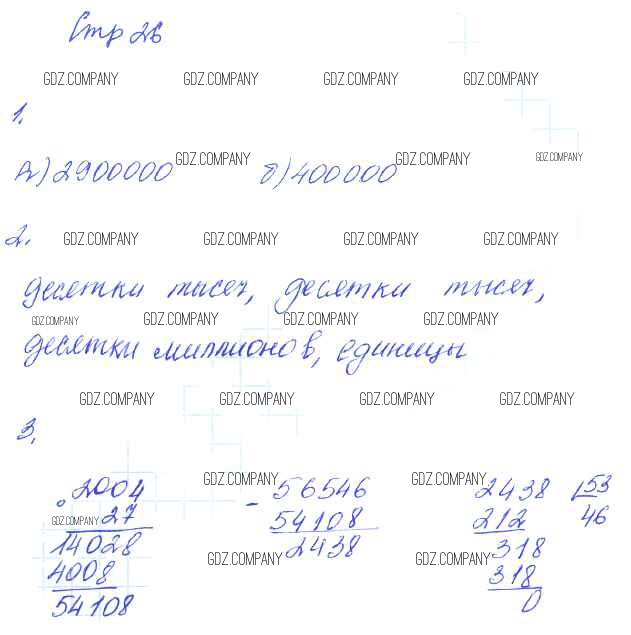 Стр 26
GDZ.COMPANY GDZ.COMPANY GDZ.COMPANY GDZ.COMPANY
1.
а) 2900000 GDZ.COMPANY б) 400000 GDZ.COMPANY GDZ.COMPANY
2. GDZ.COMPANY GDZ.COMPANY GDZ.COMPANY GDZ.COMPANY
десятки тысяч, десятки тысяч,
GDZ.COMPANY GDZ.COMPANY GDZ.COMPANY GDZ.COMPANY
десятки миллионов, единицы
GDZ.COMPANY GDZ.COMPANY GDZ.COMPANY GDZ.COMPANY
3.
GDZ.COMPANY GDZ.COMPANY
2004 - 56546 2438 53
GDZ.COMPANY 27 54108 212 46
14028 2438 318
GDZ.COMPANY GDZ.COMPANY
4008 318
54108 0